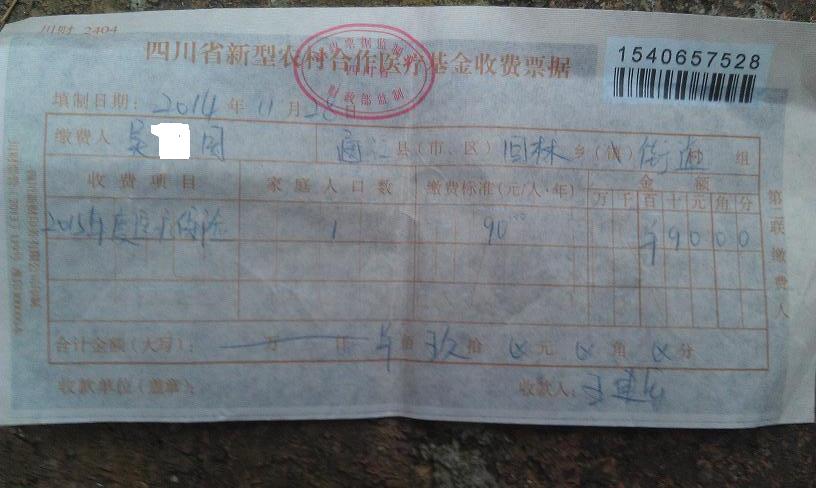 川财 2404
四川省新型农村合作医疗基金收费票据
1540657528
填制日期: 2014 年 11 月 28 日
缴费人 吴 国 通江 县(市、区) 回林 乡(镇) 街道 村 组
收费项目 家庭人口数 缴费标准(元/人·年) 金额
万 千 百 十 元 角 分
2015年度医疗保险 1 90.00 ¥ 9 0 0 0
合计金额(大写): 万 仟 ¥ 佰 玖 拾 元 角 分
收款单位(盖章): 收款人:
第二联 缴费人